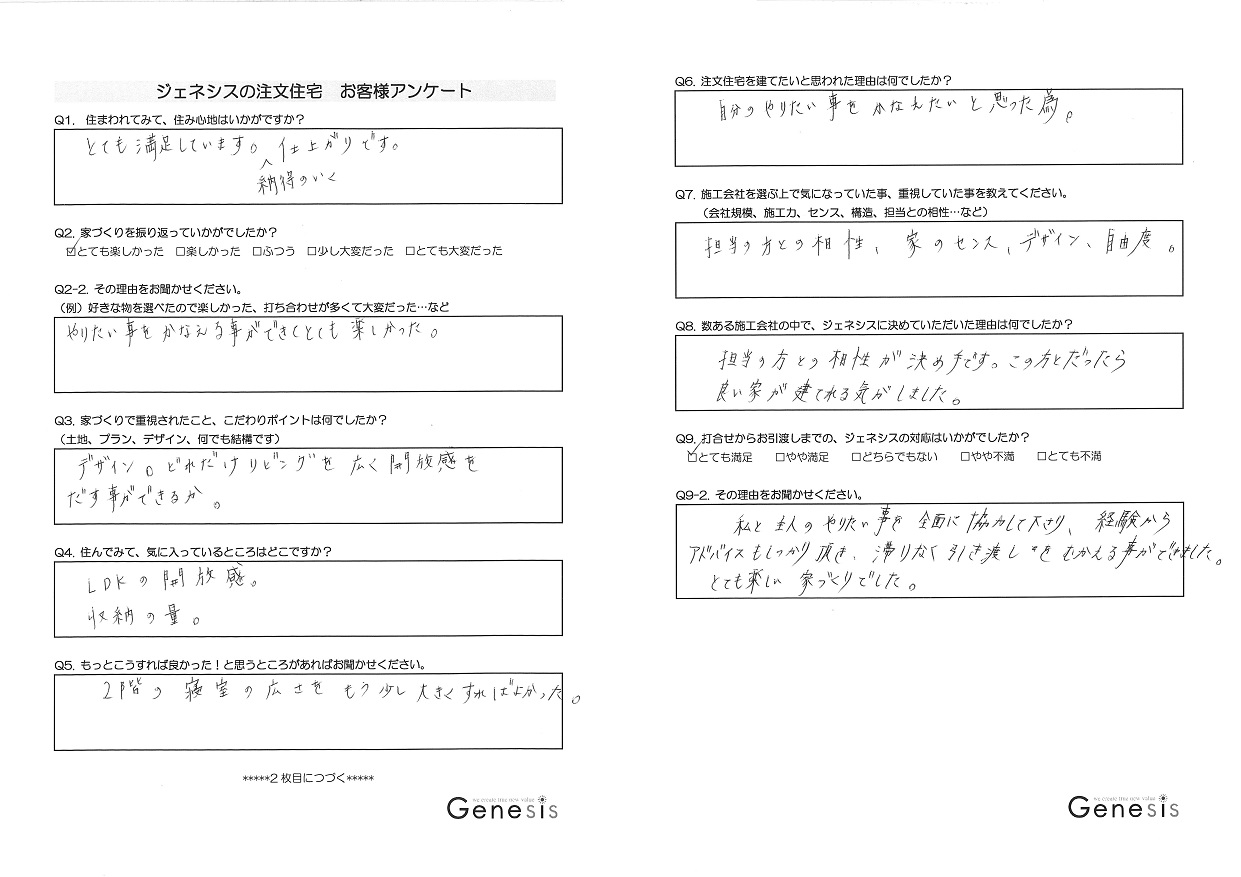 ジェネシスの注文住宅　お客様アンケート
Q1. 住まわれてみて、住み心地はいかがですか？
とても満足しています。仕上がりです。
納得のいく
Q2. 家づくりを振り返っていかがでしたか？
☑とても楽しかった　□楽しかった　□ふつう　□少し大変だった　□とても大変だった
Q2-2. その理由をお聞かせください。
（例）好きな物を選べたので楽しかった、打ち合わせが多くて大変だった…など
やりたい事をかなえる事ができてとても楽しかった。
Q3. 家づくりで重視されたこと、こだわりポイントは何でしたか？
（土地、プラン、デザイン、何でも結構です）
デザイン。どれだけリビングを広く開放感を
だす事ができるか。
Q4. 住んでみて、気に入っているところはどこですか？
LDKの開放感。
収納の量。
Q5. もっとこうすれば良かった！と思うところがあればお聞かせください。
2階の寝室の広さをもう少し大きくすればよかった。
*****2枚目につづく*****
we create true new value
Genesis
Q6. 注文住宅を建てたいと思われた理由は何でしたか？
自分のやりたい事をかなえたいと思った為。
Q7. 施工会社を選ぶ上で気になっていた事、重視していた事を教えてください。
（会社規模、施工力、センス、構造、担当との相性…など）
担当の方との相性、家のセンス、デザイン、自由度。
Q8. 数ある施工会社の中で、ジェネシスに決めていただいた理由は何でしたか？
担当の方との相性が決め手です。この方とだったら
良い家が建てれる気がしました。
Q9. 打合せからお引渡しまでの、ジェネシスの対応はいかがでしたか？
☑とても満足　□やや満足　□どちらでもない　□やや不満　□とても不満
Q9-2. その理由をお聞かせください。
私と主人のやりたい事を全面に協力して下さり、経験から
アドバイスもしっかり頂き、滞りなく引き渡しをむかえる事ができました。
とても楽しい家づくりでした。
we create true new value
Genesis